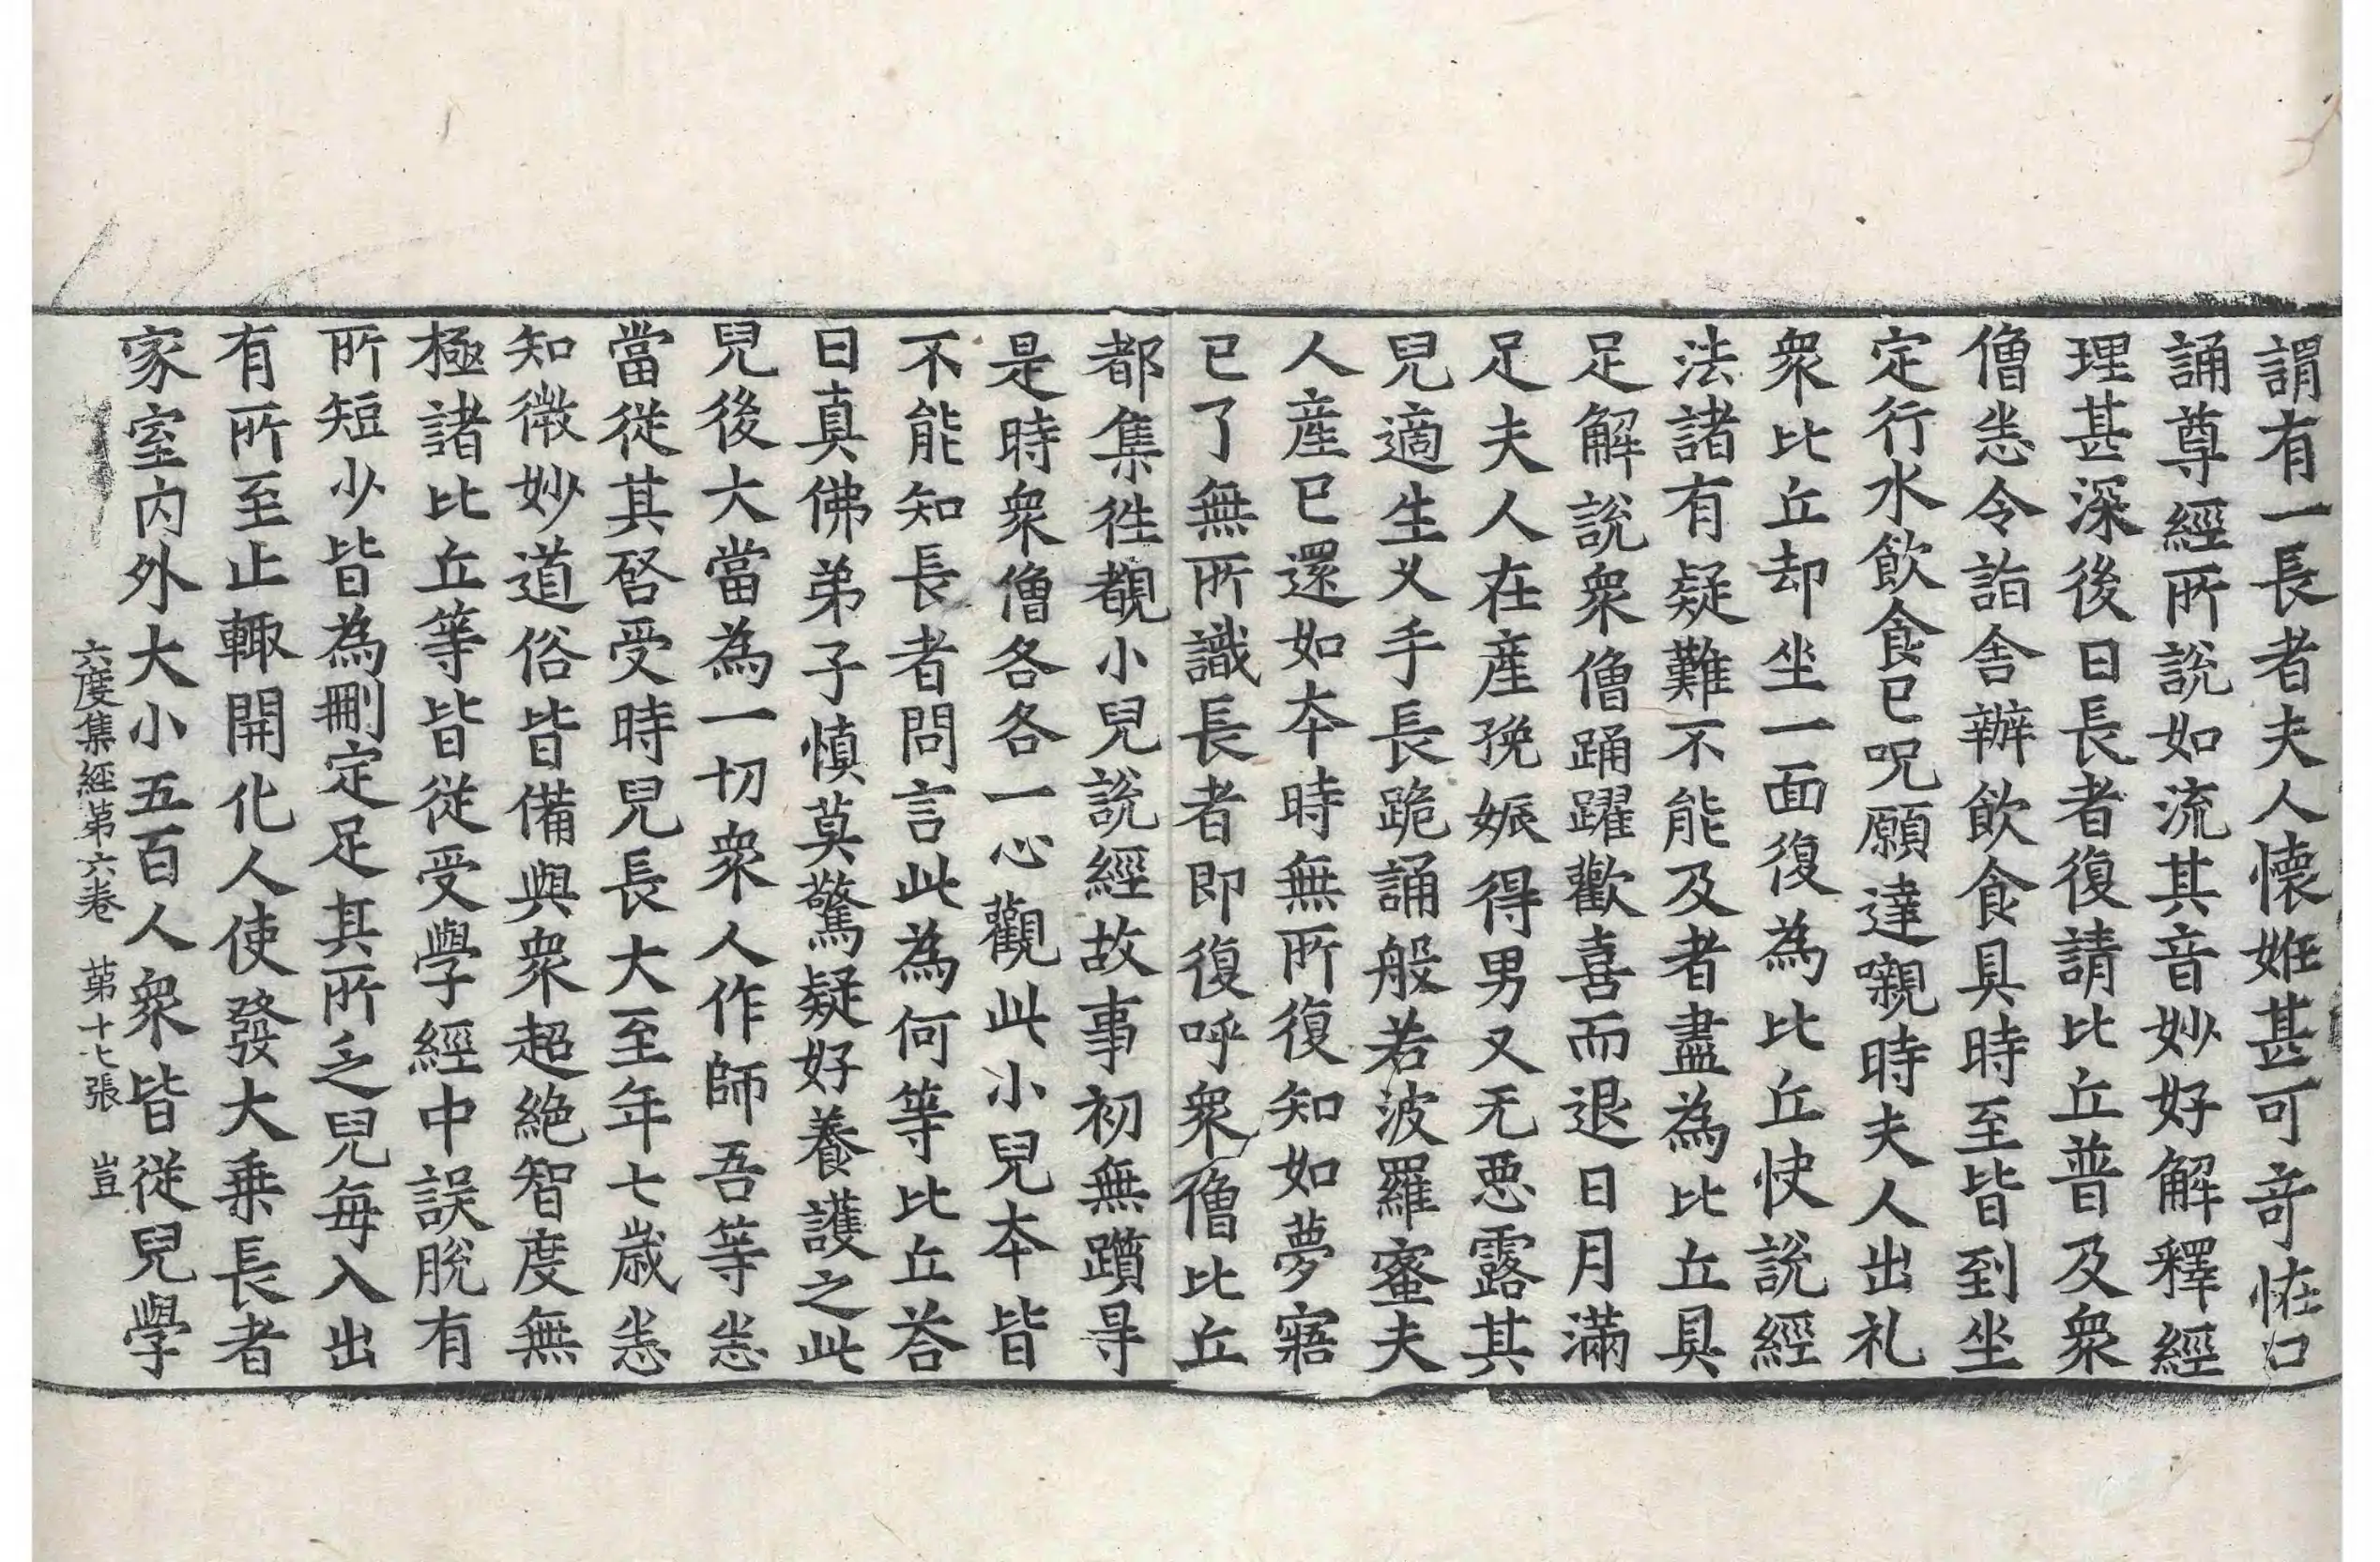 謂有一長者夫人懷妊甚可竒恠口
誦尊經所說如流其音妙好解釋經
理甚深後日長者復請比丘普及衆
僧恙令詣舎辦飲食具時至皆到坐
定行水飲食已呪願達嚫時夫人出礼
衆比丘却坐一面復為比丘快說經
法諸有疑難不能及者盡為比丘具
足解說衆僧踊躍歡喜而退日月滿
足夫人在產㝃娠得男又无悪露其
兒適生叉手長跪誦般若波羅蜜夫
人產已還如夲時無所復知如夢寤
已了無所識長者即復呼衆僧比丘
都集徃覩小兒說經故事初無躓㝵
是時衆僧各各一心觀此小兒夲皆
不能知長者問言此為何等比丘荅
曰真佛弟子慎莫驚疑好養護之此
兒後大當為一切衆人作師吾等恙
當從其啓受時兒長大至年七歲恙
知微妙道俗皆備與衆超絶智度無
極諸比丘等皆從受學經中誤脫有
所短少皆為刪定足其所乏兒每入出
有所至止輙開化人使發大乗長者
家室內外大小五百人衆皆從兒學
六度集經第六卷 第十七張 豈